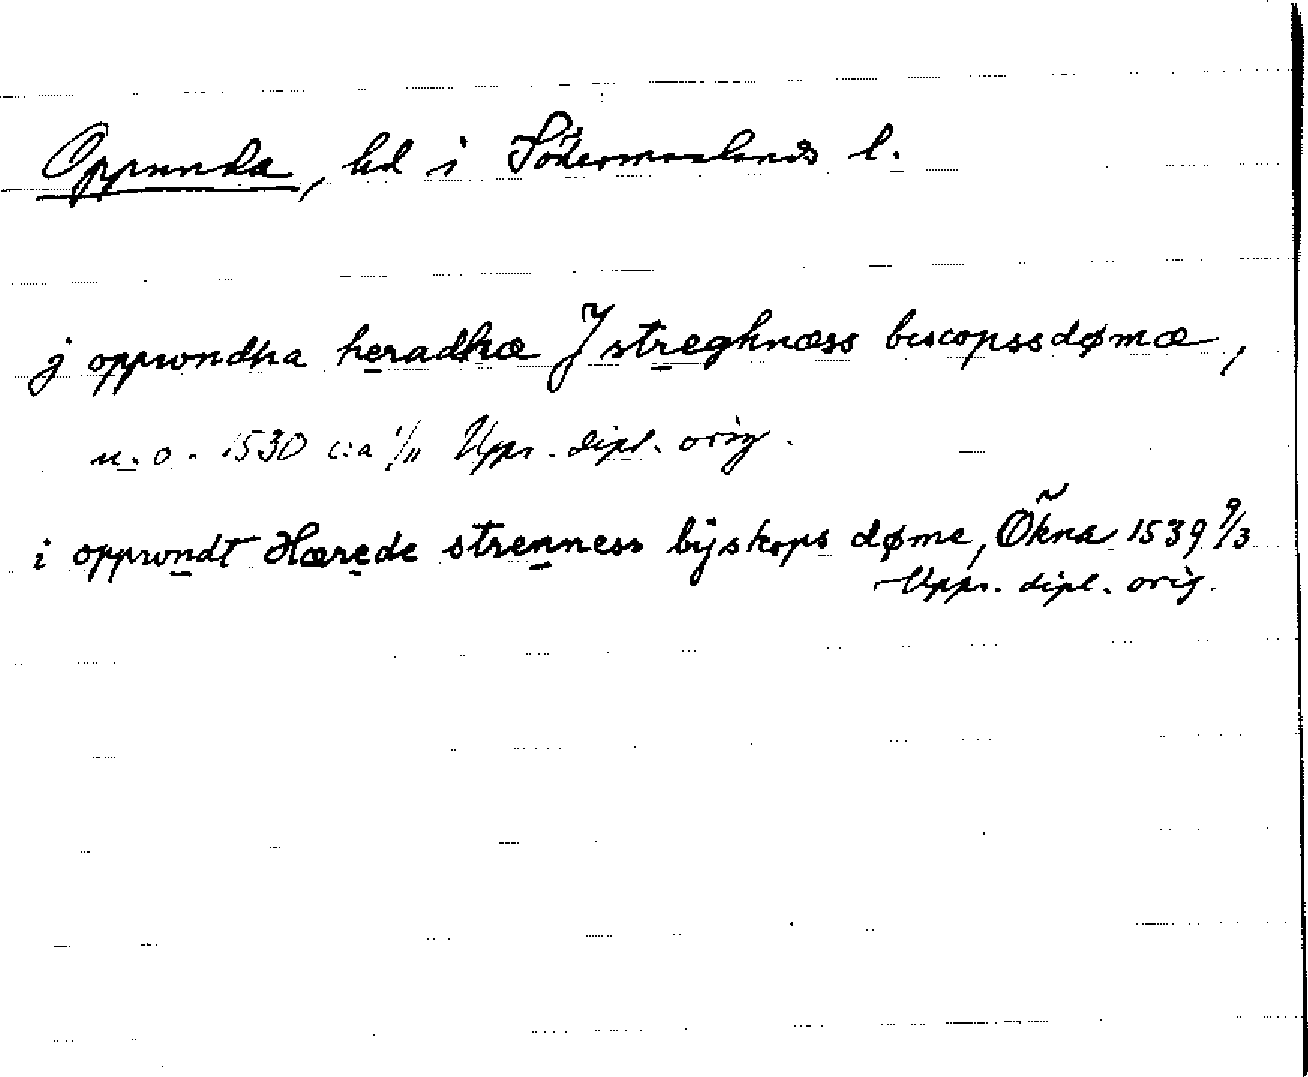 Oppunda, hd i Södermanlands l.
j opprondha heradhæ J streghnæss biscopssdømæ,
u. o. 1530 c:a 1/11 Upps. dipl. orig.
i opprondt Hærede strenness bijskops døme, Ökna 1539 9/3
Upps. dipl. orig.